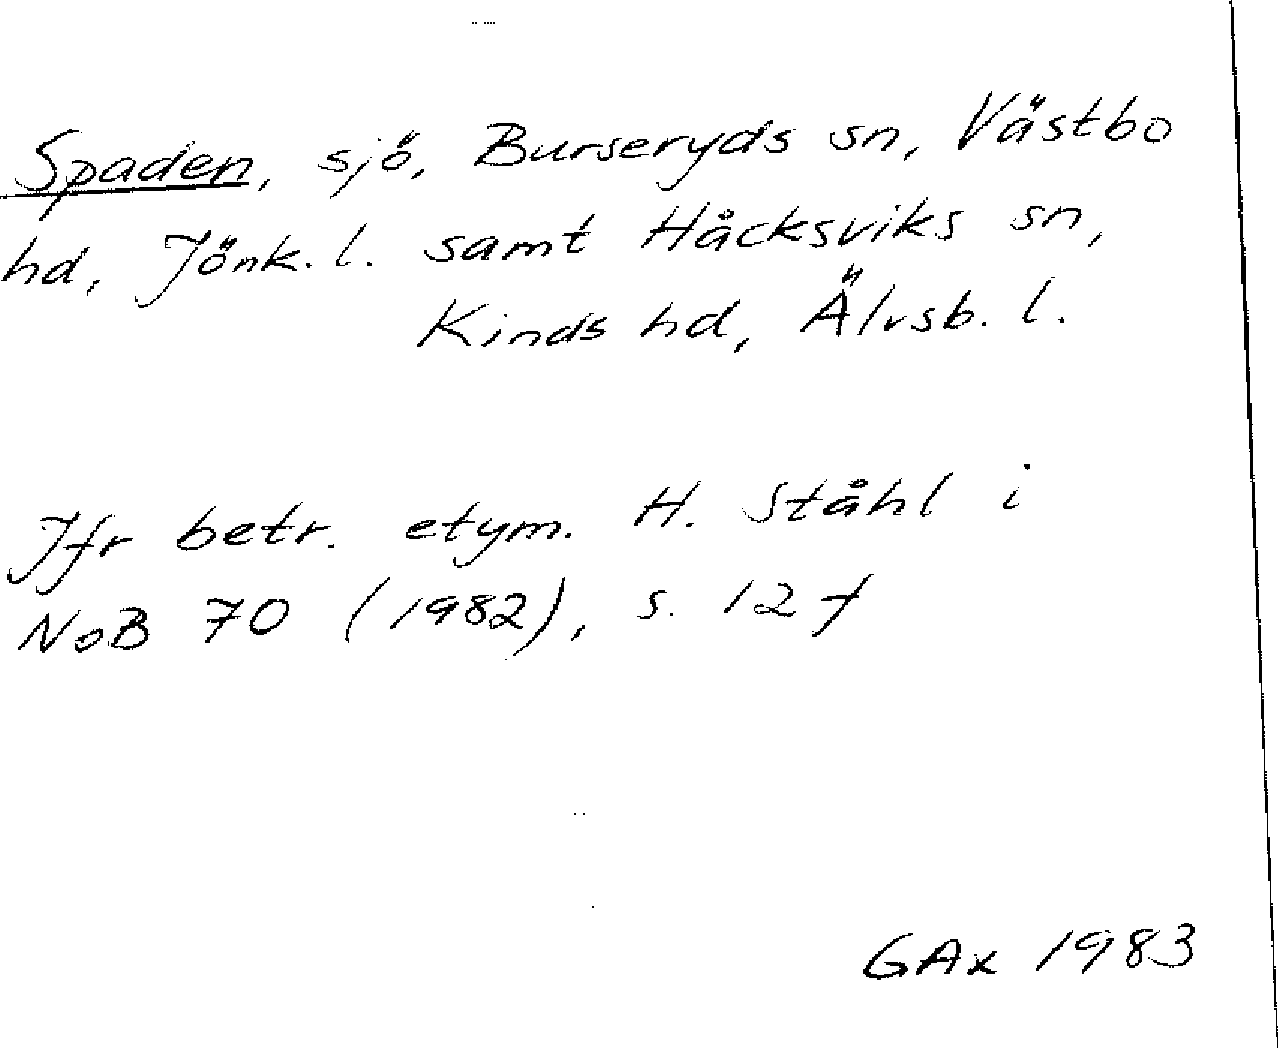 Spaden, sjö, Burseryds sn, Västbo
hd, Jönk. l. samt Håcksviks sn,
Kinds hd, Älvsb. l.
Jfr betr. etym. H. Ståhl i
NoB 70 (1982), s. 127
GAx 1983